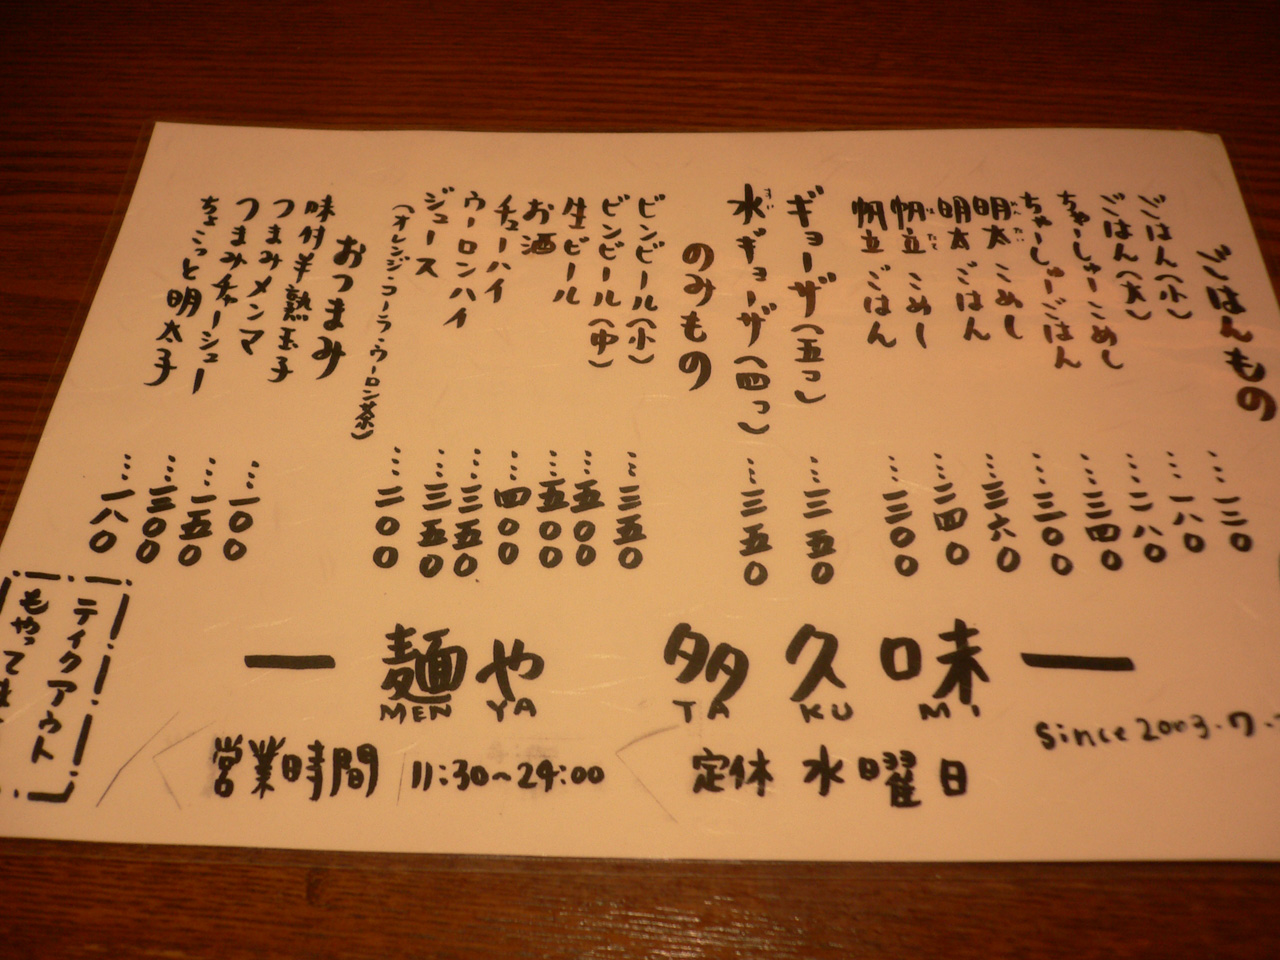 ごはんもの
ごはん(小) …一二〇
ごはん(大) …一八〇
ちゃーしゅーこめし …二八〇
ちゃーしゅーごはん …三四〇
明太こめし …三〇〇
明太ごはん …三六〇
帆立こめし …二四〇
帆立ごはん …三〇〇
ギョーザ(五つ) …三五〇
水ギョーザ(四つ) …三五〇
のみもの
ビンビール(小) …三五〇
ビンビール(中) …五〇〇
生ビール …五〇〇
お酒 …四〇〇
チューハイ …三五〇
ウーロンハイ …三五〇
ジュース …二〇〇
(オレンジ・コーラ・ウーロン茶)
おつまみ
味付半熟玉子 …一〇〇
つまみメンマ …一五〇
つまみチャーシュー …三〇〇
ちょこっと明太子 …一八〇
ー麺や 多久味ー
MEN YA TA KU MI
since 2003.7.
営業時間 11:30~24:00 定休 水曜日
テイクアウト
もやってま